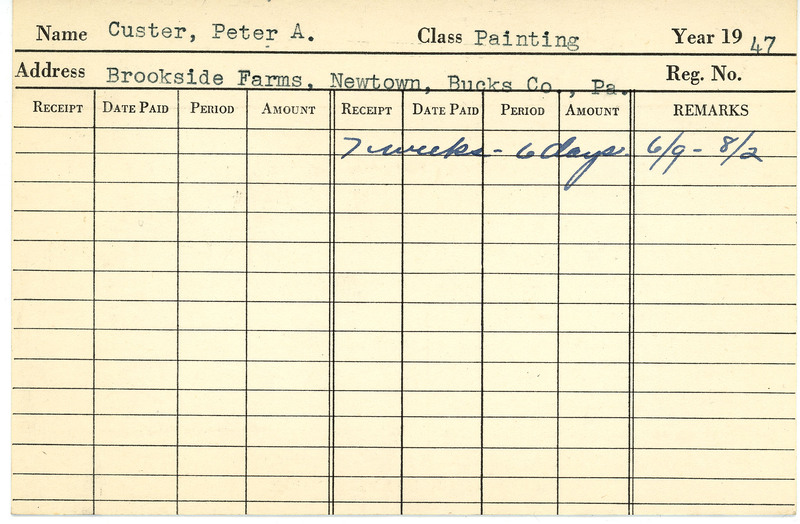 Name Custer, Peter A. Class Painting Year 19 47
Address Brookside Farms, Newtown, Bucks Co., Pa. Reg. No.
RECEIPT DATE PAID PERIOD AMOUNT RECEIPT DATE PAID PERIOD AMOUNT REMARKS
7 weeks - 6 days 6/9 - 8/2